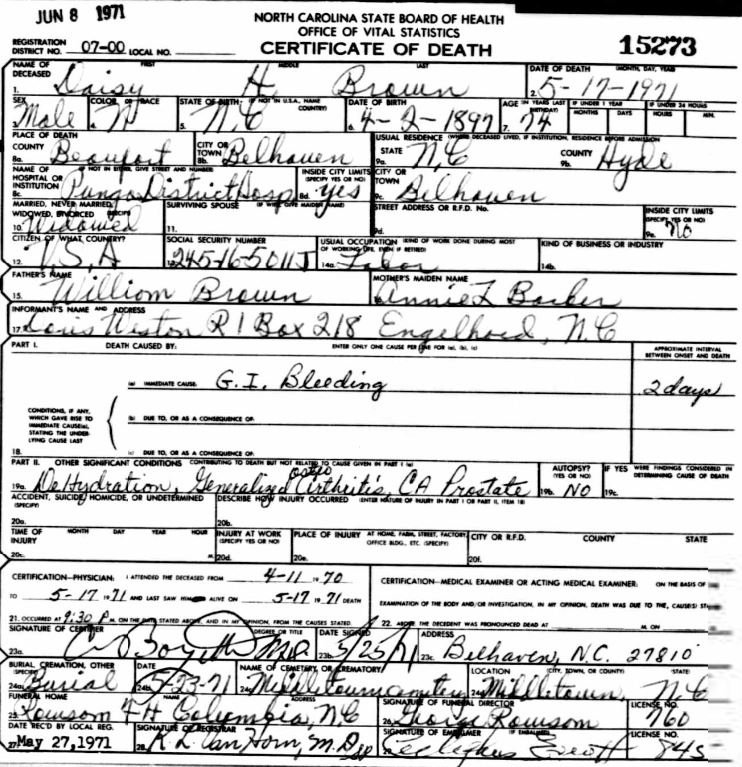 JUN 8 1971
NORTH CAROLINA STATE BOARD OF HEALTH
OFFICE OF VITAL STATISTICS
REGISTRATION DISTRICT NO. 07-00 LOCAL NO. CERTIFICATE OF DEATH 15273
NAME OF DECEASED FIRST MIDDLE LAST DATE OF DEATH (MONTH, DAY, YEAR)
1. Daisy H Brown 2. 5-17-1971
SEX COLOR OR RACE STATE OF BIRTH (IF NOT IN U.S.A., NAME COUNTRY) DATE OF BIRTH AGE (IN YEARS LAST BIRTHDAY) IF UNDER 1 YEAR IF UNDER 24 HOURS
MONTHS DAYS HOURS MIN.
3. Male 4. N 5. N.C 6. 4-2-1897 7. 74
PLACE OF DEATH USUAL RESIDENCE (WHERE DECEASED LIVED, IF INSTITUTION, RESIDENCE BEFORE ADMISSION
COUNTY CITY OR TOWN STATE COUNTY
8a. Beaufort 8b. Belhaven 9a. N.C 9b. Hyde
NAME OF HOSPITAL OR INSTITUTION (IF NOT IN EITHER, GIVE STREET AND NUMBER) INSIDE CITY LIMITS (SPECIFY YES OR NO) CITY OR TOWN
8c. Pungo District Hosp 8d. yes 9c. Belhaven
MARRIED, NEVER MARRIED, WIDOWED, DIVORCED (SPECIFY) SURVIVING SPOUSE (IF WIFE GIVE MAIDEN NAME) STREET ADDRESS OR R.F.D. No. INSIDE CITY LIMITS (SPECIFY YES OR NO)
10. Widowed 11. 9d. 9e. No
CITIZEN OF WHAT COUNTRY? SOCIAL SECURITY NUMBER USUAL OCCUPATION (KIND OF WORK DONE DURING MOST OF WORKING LIFE, EVEN IF RETIRED) KIND OF BUSINESS OR INDUSTRY
12. U.S.A 13. 245-16-5011J 14a. Labor 14b.
FATHER'S NAME MOTHER'S MAIDEN NAME
15. William Brown 16. Annie L Barber
INFORMANT'S NAME AND ADDRESS
17. Doris Weston R 1 Box 218 Engelhard, N.C
PART I. DEATH CAUSED BY: ENTER ONLY ONE CAUSE PER LINE FOR (a), (b), (c) APPROXIMATE INTERVAL BETWEEN ONSET AND DEATH
(a) IMMEDIATE CAUSE: G.I. Bleeding 2 days
CONDITIONS, IF ANY, WHICH GAVE RISE TO IMMEDIATE CAUSE(a), STATING THE UNDERLYING CAUSE LAST
(b) DUE TO, OR AS A CONSEQUENCE OF:
18. (c) DUE TO, OR AS A CONSEQUENCE OF:
PART II. OTHER SIGNIFICANT CONDITIONS CONTRIBUTING TO DEATH BUT NOT RELATED TO CAUSE GIVEN IN PART I (a) AUTOPSY? (YES OR NO) IF YES WERE FINDINGS CONSIDERED IN DETERMINING CAUSE OF DEATH
19a. DeHydration, Generalized osteo Arthritis, CA Prostate 19b. NO 19c.
ACCIDENT, SUICIDE, HOMICIDE, OR UNDETERMINED (SPECIFY) DESCRIBE HOW INJURY OCCURRED (ENTER NATURE OF INJURY IN PART I OR PART II, ITEM 18)
20a. 20b.
TIME OF INJURY MONTH DAY YEAR HOUR INJURY AT WORK (SPECIFY YES OR NO) PLACE OF INJURY AT HOME, FARM, STREET, FACTORY, OFFICE BLDG., ETC. (SPECIFY) CITY OR R.F.D. COUNTY STATE
20c. M. 20d. 20e. 20f.
CERTIFICATION—PHYSICIAN: I ATTENDED THE DECEASED FROM 4-11 1970
TO 5-17 1971 AND LAST SAW HIM ALIVE ON 5-17 1971 DEATH
21. OCCURRED AT 9:30 P M. ON THE DATE STATED ABOVE, AND IN MY OPINION, FROM THE CAUSES STATED.
CERTIFICATION—MEDICAL EXAMINER OR ACTING MEDICAL EXAMINER: ON THE BASIS OF
EXAMINATION OF THE BODY AND/OR INVESTIGATION, IN MY OPINION, DEATH WAS DUE TO THE, CAUSE(S)
22. ABOVE. THE DECEDENT WAS PRONOUNCED DEAD AT M. ON
SIGNATURE OF CERTIFIER DEGREE OR TITLE DATE SIGNED ADDRESS
23a. M.D. 23b. 5/25/71 23c. Belhaven, N.C. 27810
BURIAL, CREMATION, OTHER (SPECIFY) DATE NAME OF CEMETERY OR CREMATORY LOCATION (CITY, TOWN, OR COUNTY) (STATE)
24a. Burial 24b. 5/23-71 24c. Middletown cemetery 24d. Middletown, N.C
FUNERAL HOME ADDRESS SIGNATURE OF FUNERAL DIRECTOR LICENSE NO.
25. Rowsom F H Columbia, N.C 26. George Rowsom 760
DATE REC'D BY LOCAL REG. SIGNATURE OF REGISTRAR SIGNATURE OF EMBALMER (IF EMBALMED) LICENSE NO.
27. May 27, 1971 28. K. L. Van Horn, M.D. 845